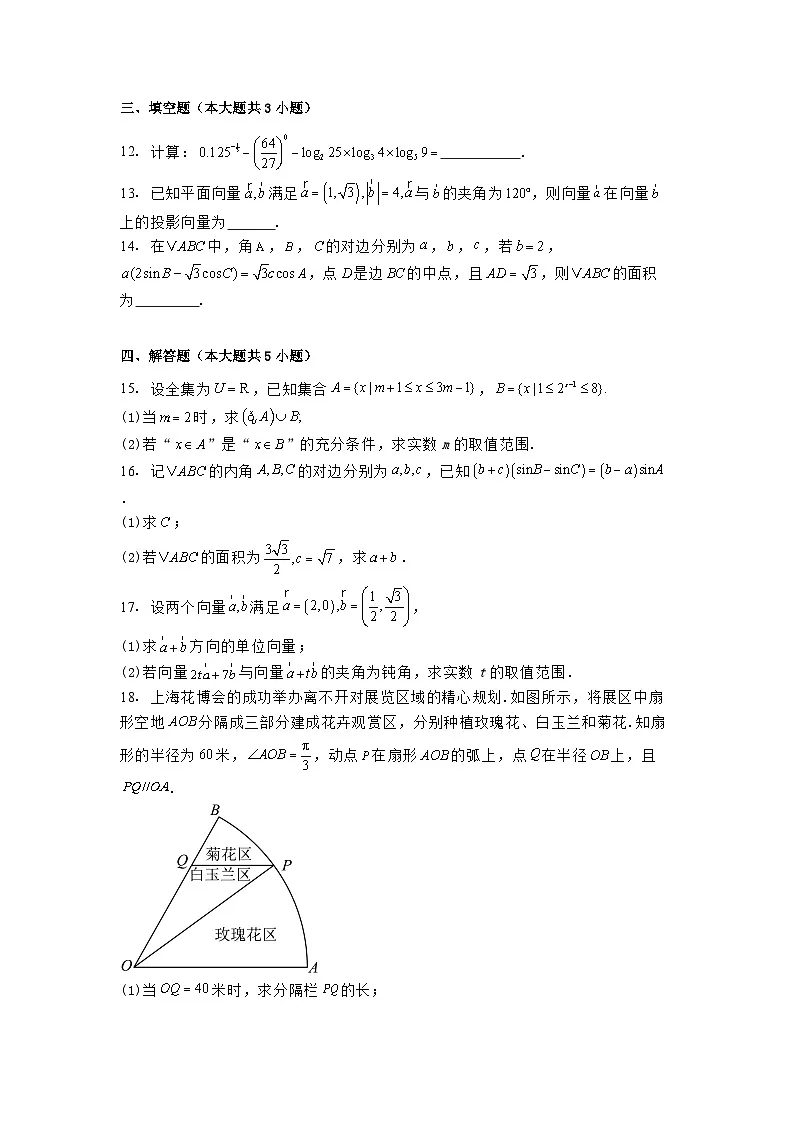 三、填空题（本大题共3小题）
12. 计算：0.125^{-1/3} − (64/27)^0 − log₂ 25×log₃ 4×log₅ 9= ______.
13. 已知平面向量 a,b 满足 a = (1,√3),|b| = 4,a 与 b 的夹角为120°,则向量 a 在向量 b
上的投影向量为 ______.
14. 在∨ABC中,角A,B,C的对边分别为a,b,c,若b = 2,
a(2sin B − √3 cos C) = √3c cos A,点D是边BC的中点,且AD = √3,则∨ABC的面积
为 ______.
四、解答题（本大题共5小题）
15. 设全集为U = R,已知集合 A = {x | m+1 ≤ x ≤ 3m−1}, B = {x |1 ≤ 2^{x−1} ≤ 8}.
(1)当m = 2时,求(ð_U A)∪B;
(2)若“x∈A”是“x∈B”的充分条件,求实数m的取值范围.
16. 记∨ABC的内角A,B,C的对边分别为a,b,c,已知(b+c)(sinB−sinC) = (b−a)sinA
.
(1)求C;
(2)若∨ABC的面积为 3√3/2, c = √7,求a+b.
17. 设两个向量 a,b 满足 a = (2,0),b = (1/2, √3/2),
(1)求 a+b 方向的单位向量;
(2)若向量 2ta+7b 与向量 a+tb 的夹角为钝角,求实数t的取值范围.
18. 上海花博会的成功举办离不开对展览区域的精心规划.如图所示,将展区中扇
形空地AOB分隔成三部分建成花卉观赏区,分别种植玫瑰花、白玉兰和菊花.知扇
形的半径为60米,∠AOB = π/3,动点P在扇形AOB的弧上,点Q在半径OB上,且
PQ//OA.
B
菊花区
Q
P
白玉兰区
玫瑰花区
O
A
(1)当OQ = 40米时,求分隔栏PQ的长;